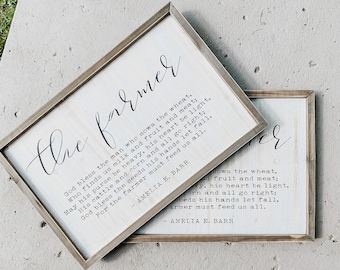 the farmer
God bless the man who sows the wheat,
Who finds us milk and fruit and meat;
May his purse be heavy, his heart be light,
His cattle and corn and all go right;
God bless the seeds his hands let fall,
For the farmer must feed us all.
- AMELIA E. BARR
er
the wheat,
fruit and meat;
his heart be light,
and all go right;
his hands let fall,
farmer must feed us all.
- AMELIA E. BARR